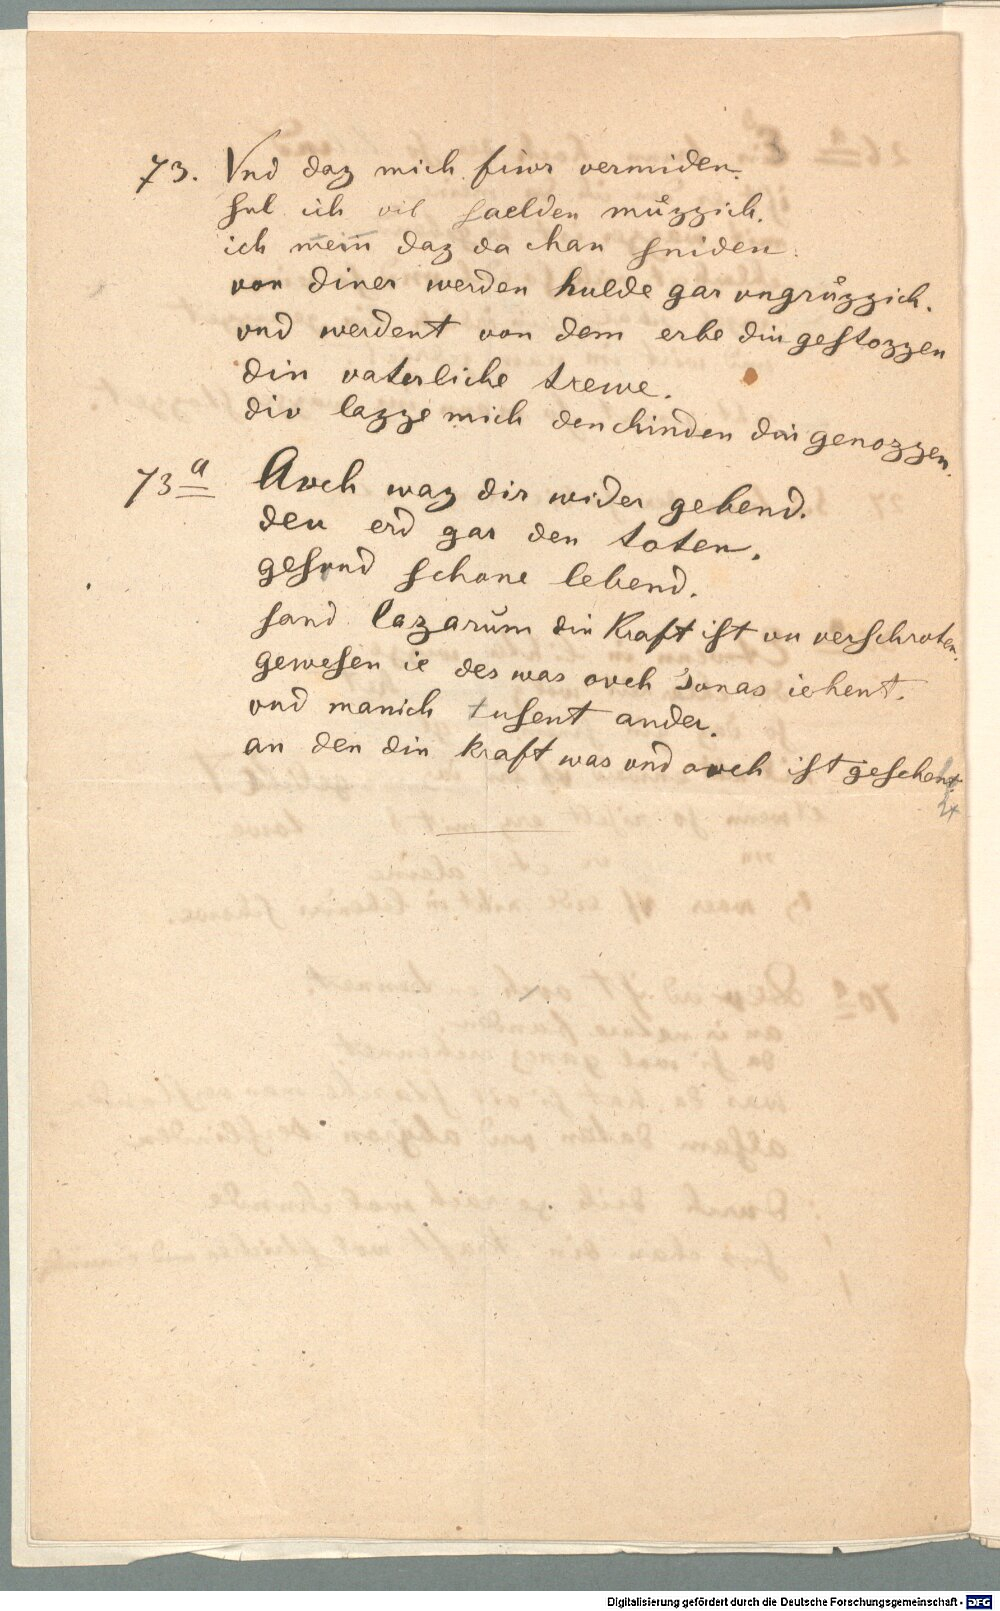 73. Vnd daz mich fiwr vermiden.
sul ich vil saelden muͤzzich.
ich mein daz da chan sniden.
von diner werden hulde gar vngruͤzzich.
vnd werdent von dem erbe din gestozzen
din vaterliche trewe.
div lazze mich den chinden din genozzen.
73a Avch waz dir wider gebend.
deu erd gar den toten.
gesvnd schone lebend.
sand lazarum din Kraft ist vn verschroten.
gewesen ie des was avch Jonas iehent.
vnd manich tusent ander.
an den din kraft was vnd avch ist geschent.
Digitalisierung gefördert durch die Deutsche Forschungsgemeinschaft - DFG